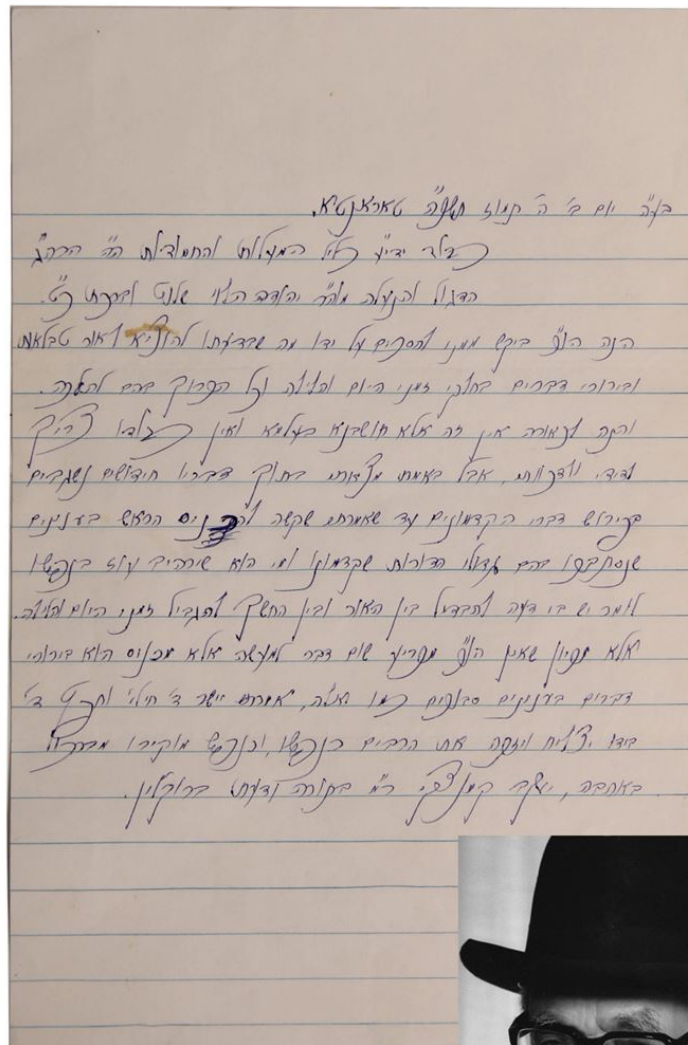 בע"ה יום ב' ה' תמוז תשמ"ה טאראנטא.
כבוד ידי"ע כליל המעלות והחמודות הר' הרה"ג
הדגול והנעלה מוהר"ר יהודה הלוי שלום וברכת כ"ט.
הנה הנ"ל ביקש ממני להסכים על ידו מה שבדעתו להוציא לאור טבלאות
ובירורי דברים בחלקי זמני היום והלילה וכל הכרוך בהם להלכה.
והנה לכאורה אין זה אלא חושבנא בעלמא ואין כבודו צריך
לדידי ולדכוותי, אבל באמת מצאתי בתוך דבריו חידושים נשגבים
בפירוש דברי הקדמונים עד שאמרתי שקשה להכניס הראש בענינים
שנסתבכו בהם גדולי הדורות שקדמונו ומי הוא שירהיב עוז בנפשו
לומר יש בי דעה להבדיל בין האור ובין החשך להגביל זמני היום והלילה.
אלא מכיון שאין הנ"ל מכריע שום דבר למעשה אלא מכנים הוא בירורי
דברים בענינים סבוכים כמו אלה, אמרתי יישר ד' חילי' וחפץ ד'
בידו יצליח ויזכה את הרבים כנפשו, וכנפש מוקירו מברכו
באהבה, יעקב קמנצקי ר"מ בתורה ודעת ברוקלין.